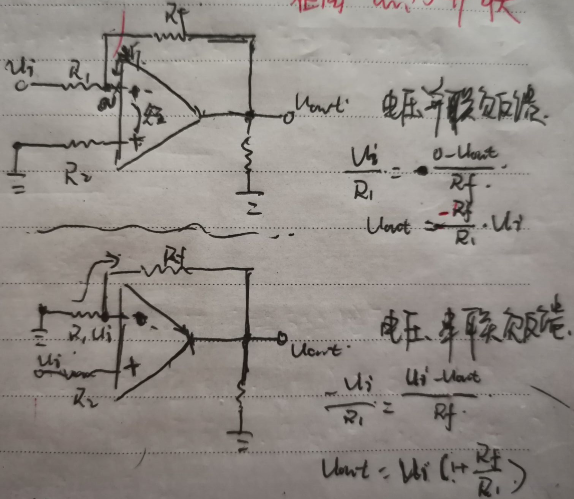 Rf
Ui R1 - Uout 电压并联负反馈
+
R2
Ui/R1 = 0-Uout/Rf
Uout = -Rf/R1 · Ui
Rf
R1 Ui - Uout 电压串联负反馈
Ui +
R2
-Ui/R1 = Ui-Uout/Rf
Uout = Ui(1+Rf/R1)